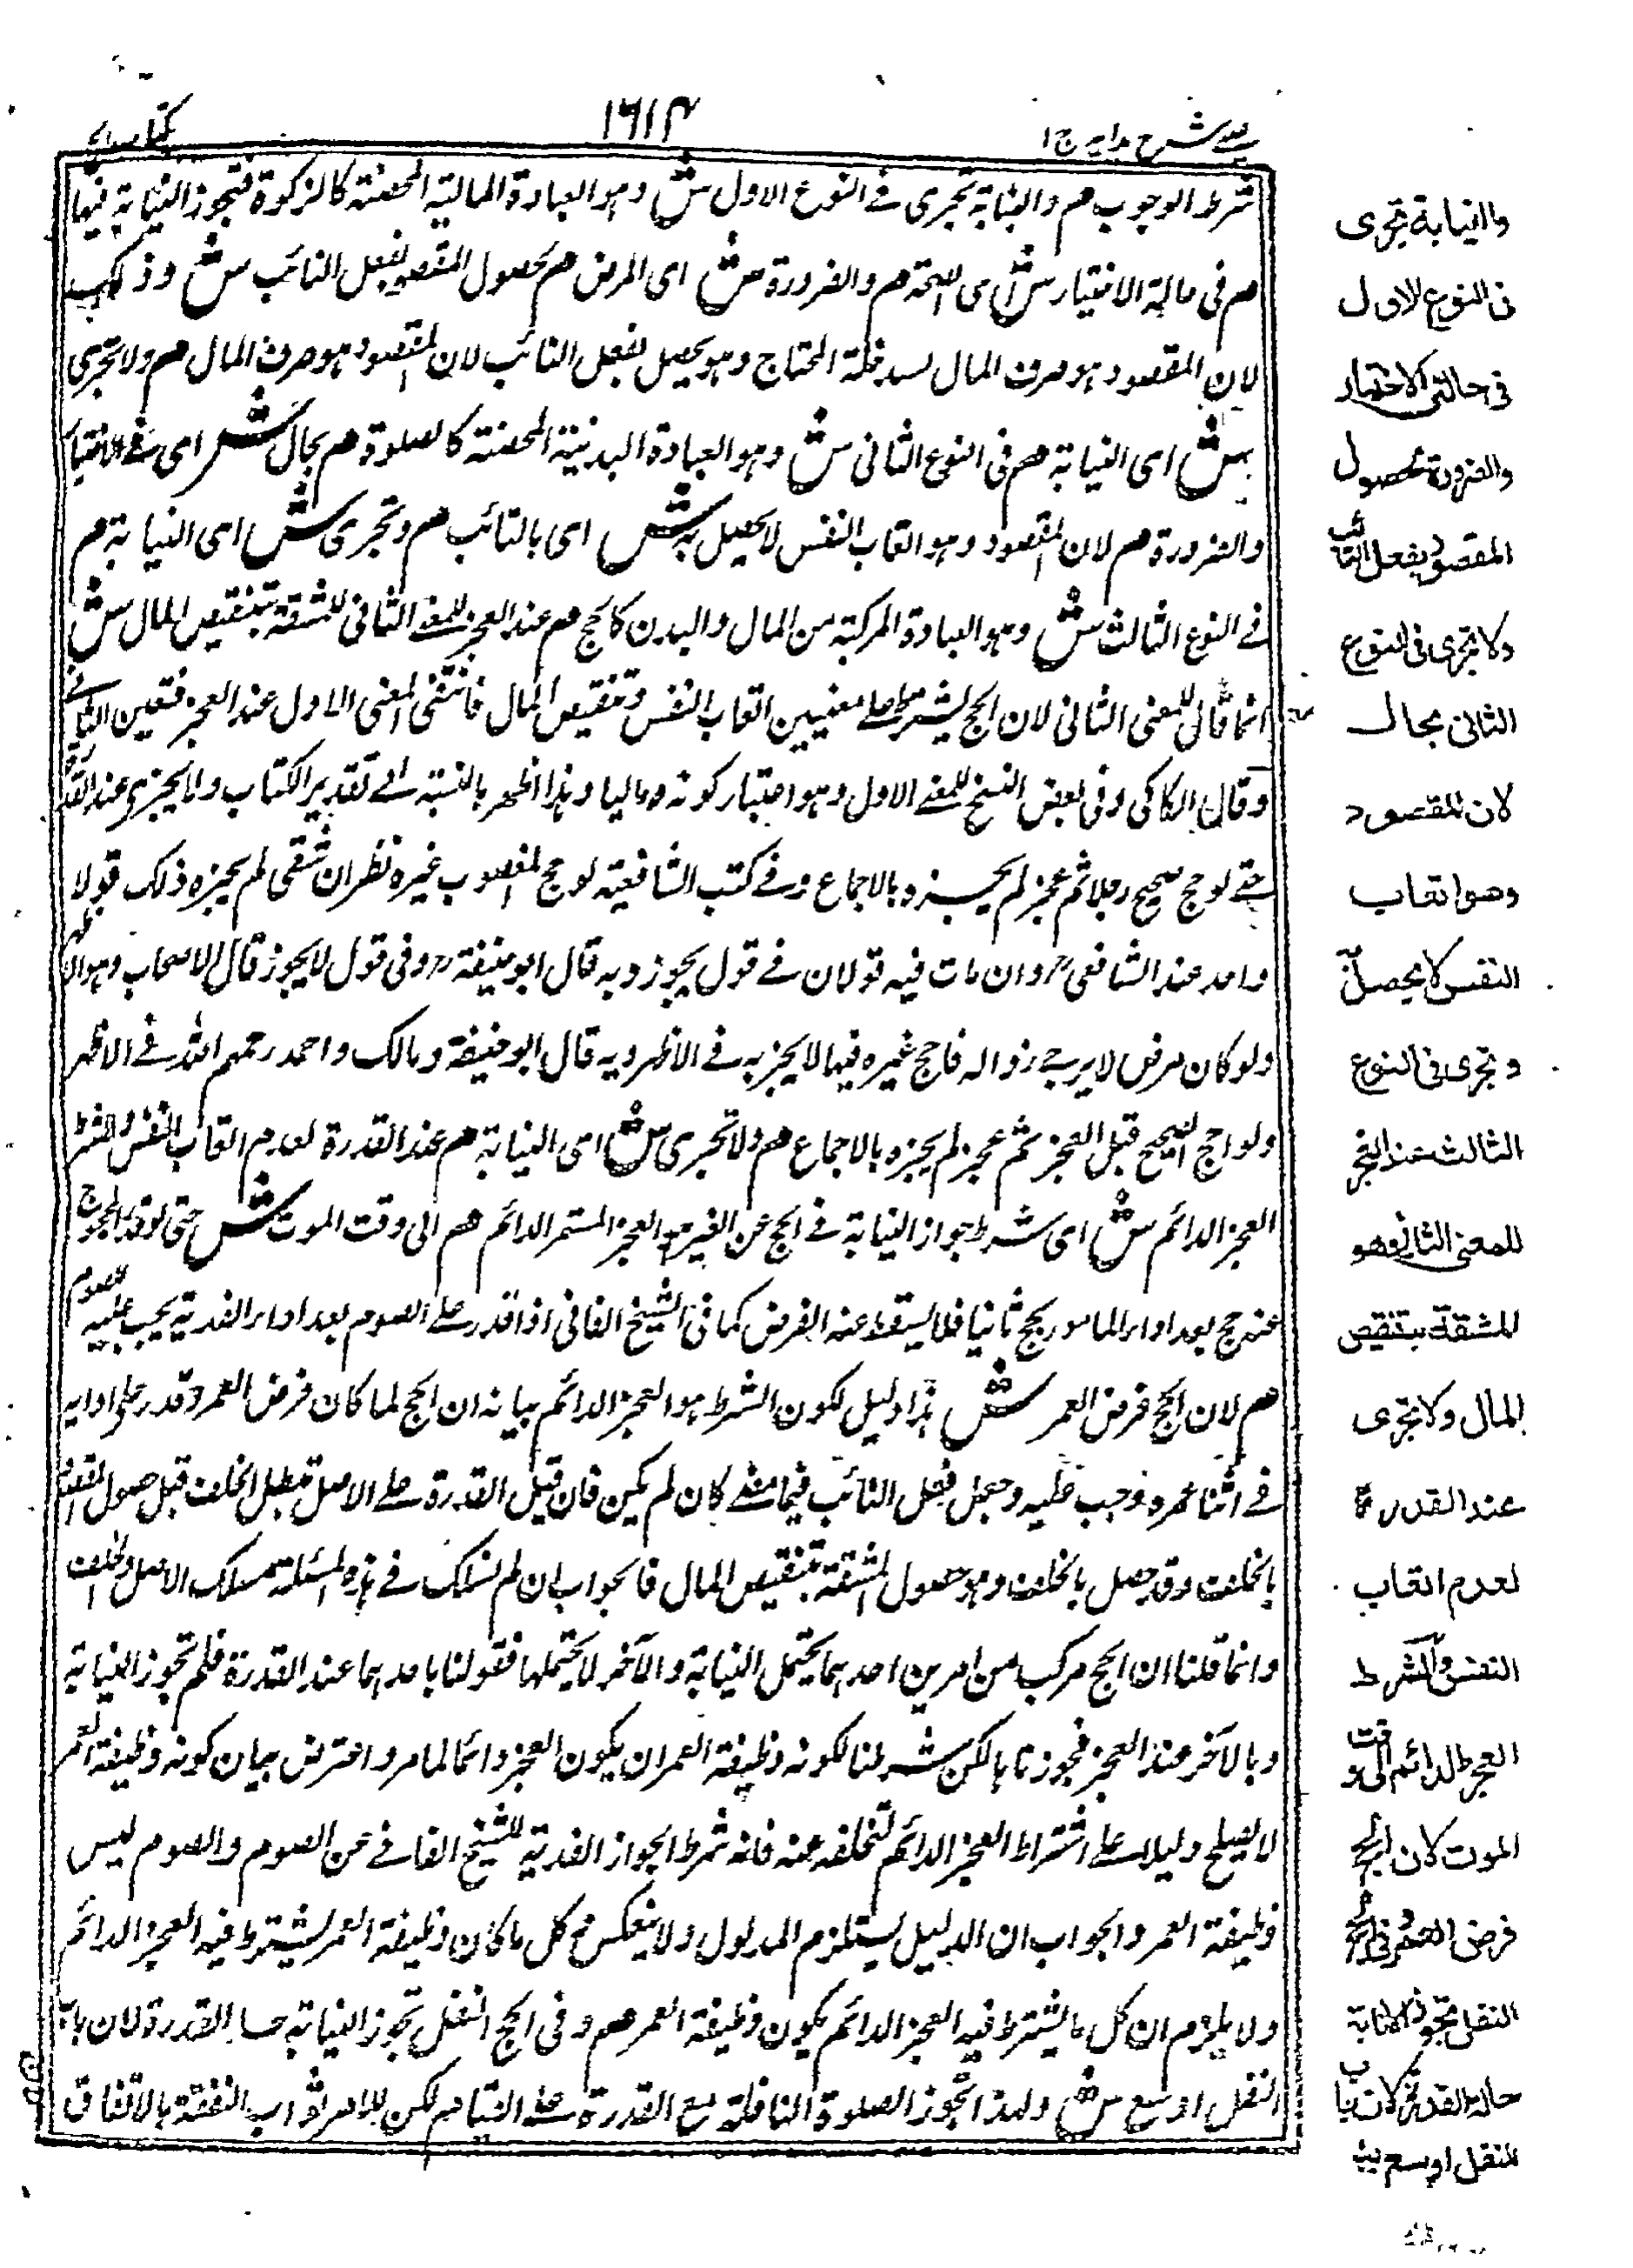 عینی شرح ہدایہ ج ۱
۱۶۱۴
کتاب الحج
شرط الوجوب م والنیابة تجری فی النوع الاول ش وهو العبادة المالیة المحضة کالزکوة فتجوز النیابة فیها
م فی حالة الاختیار ش ای الصحة م والضرورة ش ای المرض م لحصول المقصود بفعل النائب ش وذلک
لان المقصود هو صرف المال لسد خلة المحتاج وهو یحصل بفعل النائب لان المقصود هو صرف المال م ولا تجری
ش ای النیابة م فی النوع الثانی ش وهو العبادة البدنیة المحضة کالصلوة م بحال ش ای فی الاختیار
والضرورة م لان المقصود وهو اتعاب النفس لا یحصل به ش ای بالنائب م وتجری ش ای النیابة م
فی النوع الثالث ش وهو العبادة المرکبة من المال والبدن کالحج م عند العجز للمعنی الثانی للمشقة بتنقیص المال ش
انما قال للمعنی الثانی لان الحج یشتمل علی معنیین اتعاب النفس وتنقیص المال فانتفی المعنی الاول عند العجز فتعین الثانی
وقال الکاکی وفی بعض النسخ للمعنی الاول وهو اعتبار کونه مالیا وهذا اظهر بالنسبة الی تقدیر الکتاب ولا یجزی عند القدرة
حتی لو حج صحیح رجلا ثم عجز لم یجزه بالاجماع وفی کتب الشافعیة لو حج المغصوب غیره نظر ان شفی لم یجزه ذلک قولا
واحد عند الشافعی وان مات فیه قولان فی قول یجوز وبه قال ابو حنیفة وفی قول لا یجوز قال الاصحاب وهو الاظهر
ولو کان مرض لا یرجی زواله فاحج غیره فیها لا یجزیه فی الاظهر وبه قال ابو حنیفة ومالک واحمد رحمهم الله فی الاظهر
ولو احج الصحیح قبل العجز ثم عجز لم یجزه بالاجماع م ولا تجری ش ای النیابة م عند القدرة لعدم اتعاب النفس والشرط
العجز الدائم ش ای شرط جواز النیابة فی الحج عن الغیر هو العجز المستمر الدائم م الی وقت الموت ش حتی لو قدر المحجوج
عنه حج بعد اداء المامور یحج ثانیا فلا یسقط عنه الفرض کما فی الشیخ الفانی اذا قدر علی الصوم بعد اداء الفدیة یجب علیه الصوم
م لان الحج فرض العمر ش هذا دلیل لکون الشرط هو العجز الدائم بیانه ان الحج لما کان فرض العمر وقدر علی ادایه
فی اثنا عمره وجب علیه وجعل فعل النائب فیما مضی کان لم یکن فان قیل القدرة علی الاصل تبطل الخلف قبل حصول المقصود
بالخلف وقد حصل بالخلف وهو حصول المشقة بتنقیص المال فالجواب ان لم نسلک فی هذه المسئلة مسلک الاصل والخلف
وانما قلنا ان الحج مرکب من امرین احدهما یحتمل النیابة والآخر لا یحتملها فقولنا باحدهما عند القدرة فلم تجوز النیابة
وبالآخر عند العجز فجوزناها لکن شرطنا لکونه وظیفة العمر ان یکون العجز دائما لما مر واعترض ببیان کونه وظیفة العمر
لا یصلح دلیلا علی اشتراط العجز الدائم لتخلفه عنه فانه شرط لجواز الفدیة للشیخ الفانی عن الصوم والصوم لیس
وظیفة العمر والجواب ان الدلیل یستلزم المدلول ولا ینعکس فکل ما کان وظیفة العمر یشترط فیه العجز الدائم
ولا یلزم ان کل ما یشترط فیه العجز الدائم یکون وظیفة العمر م وفی الحج النفل تجوز النیابة حالة القدرة لان باب
النفل اوسع ش ولهذا تجوز الصلوة النافلة مع القدرة علی القیام لکن للامر ثواب النفقة بالاتفاق
والنیابة تجری
فی النوع الاول
فی حالتی الاختیار
والضرورة لحصول
المقصود بفعل النائب
ولا تجری فی النوع
الثانی بحال
لان المقصود
وهو اتعاب
النفس لا یحصل به
وتجری فی النوع
الثالث عند العجز
للمعنی الثانی وهو
المشقة بتنقیص
المال ولا تجری
عند القدرة
لعدم اتعاب
النفس والشرط
العجز الدائم الی وقت
الموت لان الحج
فرض العمر وفی الحج
النفل تجوز الانابة
حالة القدرة لان باب
النفل اوسع